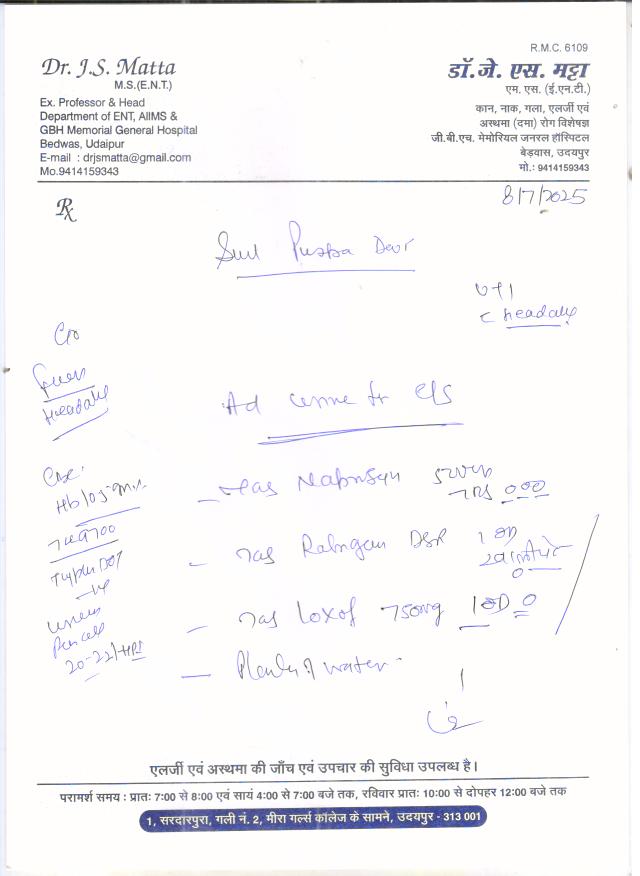 R.M.C. 6109
Dr. J.S. Matta
M.S.(E.N.T.)
Ex. Professor & Head
Department of ENT, AIIMS &
GBH Memorial General Hospital
Bedwas, Udaipur
E-mail : drjsmatta@gmail.com
Mo.9414159343
डॉ.जे. एस. मट्टा
एम. एस. (ई.एन.टी.)
कान, नाक, गला, एलर्जी एवं
अस्थमा (दमा) रोग विशेषज्ञ
जी.बी.एच. मेमोरियल जनरल हॉस्पिटल
बेड़वास, उदयपुर
मो.: 9414159343
Rx
8/7/2025
Puspa Devi
UTI
c Headache
C/o
fever
Headache
Ad
Hb 10.5
Typhi Dot
-ve
20-22/HPF
DSR
Loxof 750mg 1 OD
Plenty of water
एलर्जी एवं अस्थमा की जाँच एवं उपचार की सुविधा उपलब्ध है।
परामर्श समय : प्रातः 7:00 से 8:00 एवं सायं 4:00 से 7:00 बजे तक, रविवार प्रातः 10:00 से दोपहर 12:00 बजे तक
1, सरदारपुरा, गली नं. 2, मीरा गर्ल्स कॉलेज के सामने, उदयपुर - 313 001